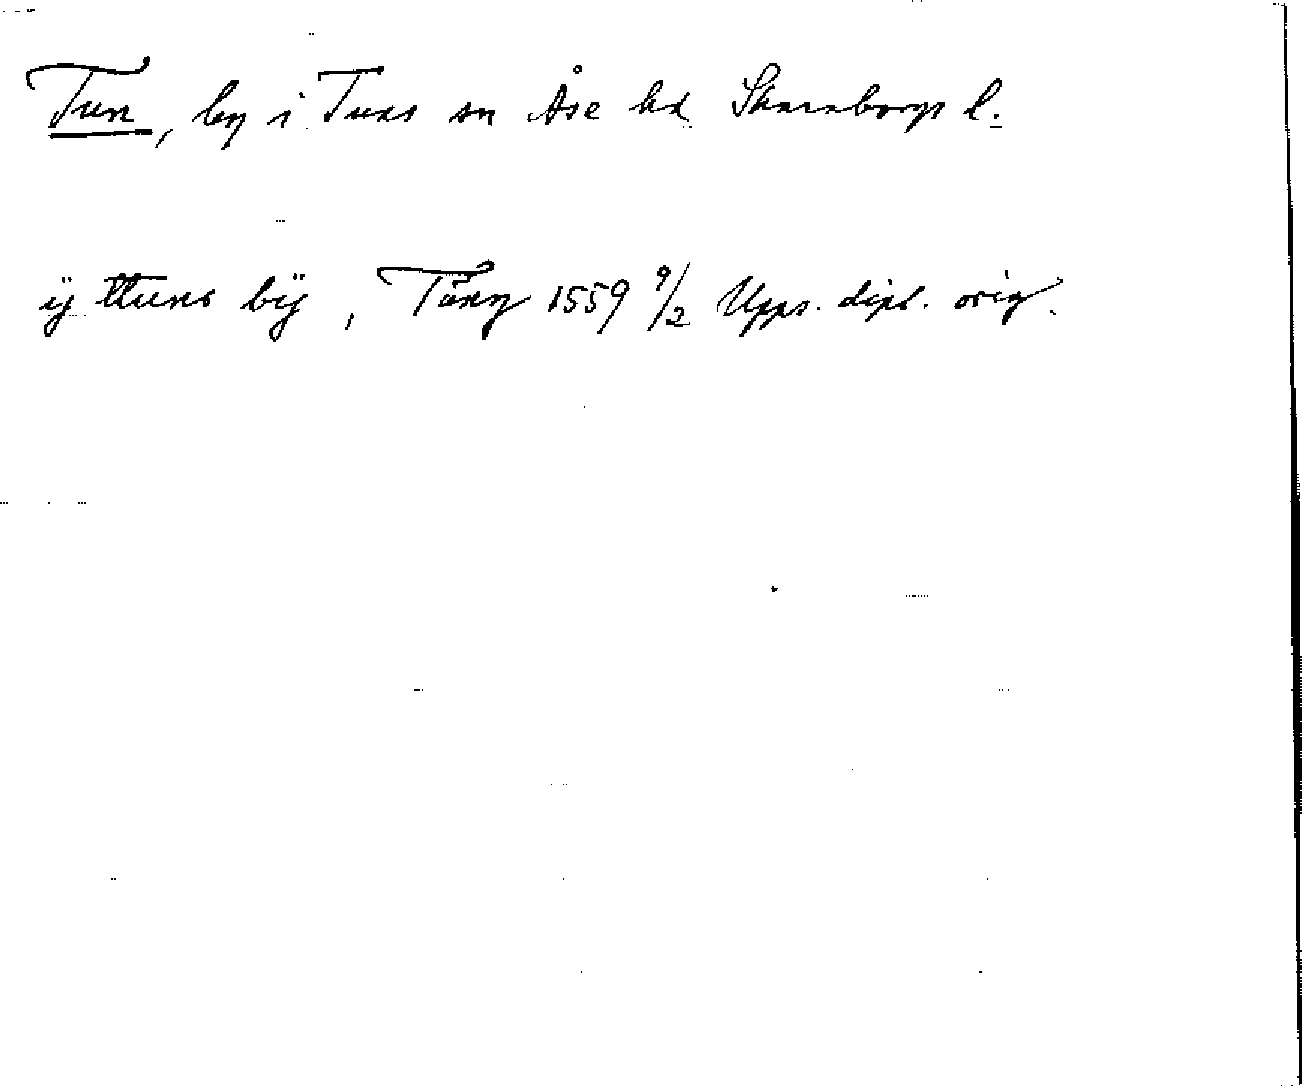 Tun, by i Tuns sn Åse hd Skaraborgs l.
ÿ ttuns bÿ, Tång 1559 9/2 Upps. dipl. orig.